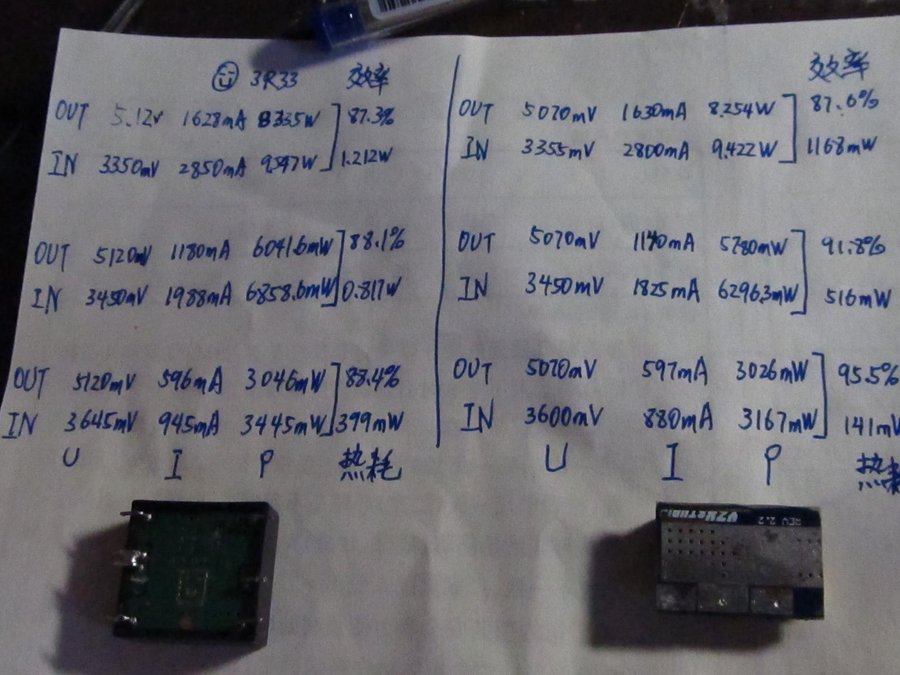 3R33 效率
OUT 5.12V 1628mA 8335W 87.3%
IN 3350mV 2850mA 9.547W 1.212W
OUT 5120mV 1180mA 6041.6mW 88.1%
IN 3450mV 1988mA 6858.6mW 0.817W
OUT 5120mV 596mA 3046mW 88.4%
IN 3645mV 945mA 3445mW 399mW
U I P 热耗
效率
OUT 5070mV 1630mA 8.254W 87.6%
IN 3355mV 2800mA 9.422W 1168mW
OUT 5070mV 1140mA 5780mW 91.8%
IN 3450mV 1825mA 6296.3mW 516mW
OUT 5070mV 597mA 3026mW 95.5%
IN 3600mV 880mA 3167mW 141mW
U I P 热耗
REV 2.2